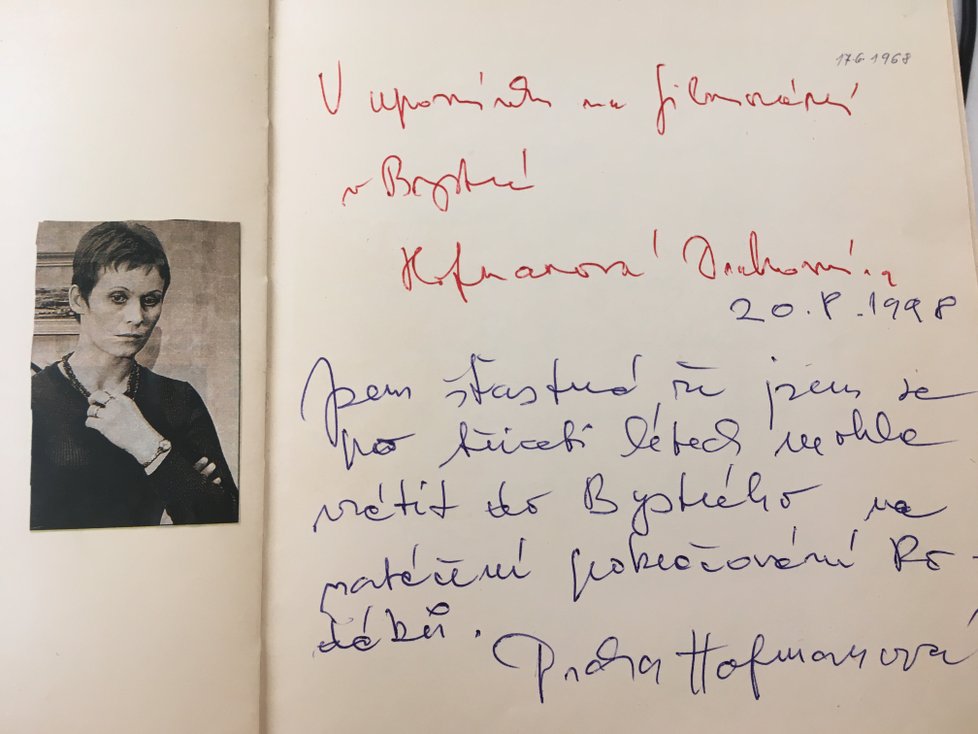 17.6.1968
V upomínku na filmování
v Bystré
Hofmanová Drahomíra
20.8.1998
Jsem šťastná že jsem se
po třiceti létech mohla
vrátit do Bystrého na
natáčení pokračování Ro-
dáků.
Draha Hofmanová